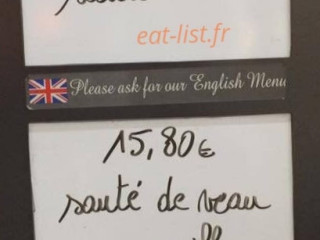 eat-list.fr
Please ask for our English Menu
15,80€
sauté de veau